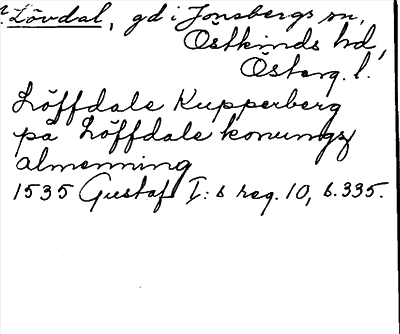 Lövdal, gd i Jonsbergs sn,
Östkinds hd,
Österg. l.
Löffdale Kupperberg
på Löffdale konungz
almenning
1535 Gustaf I:s reg. 10, s. 335.